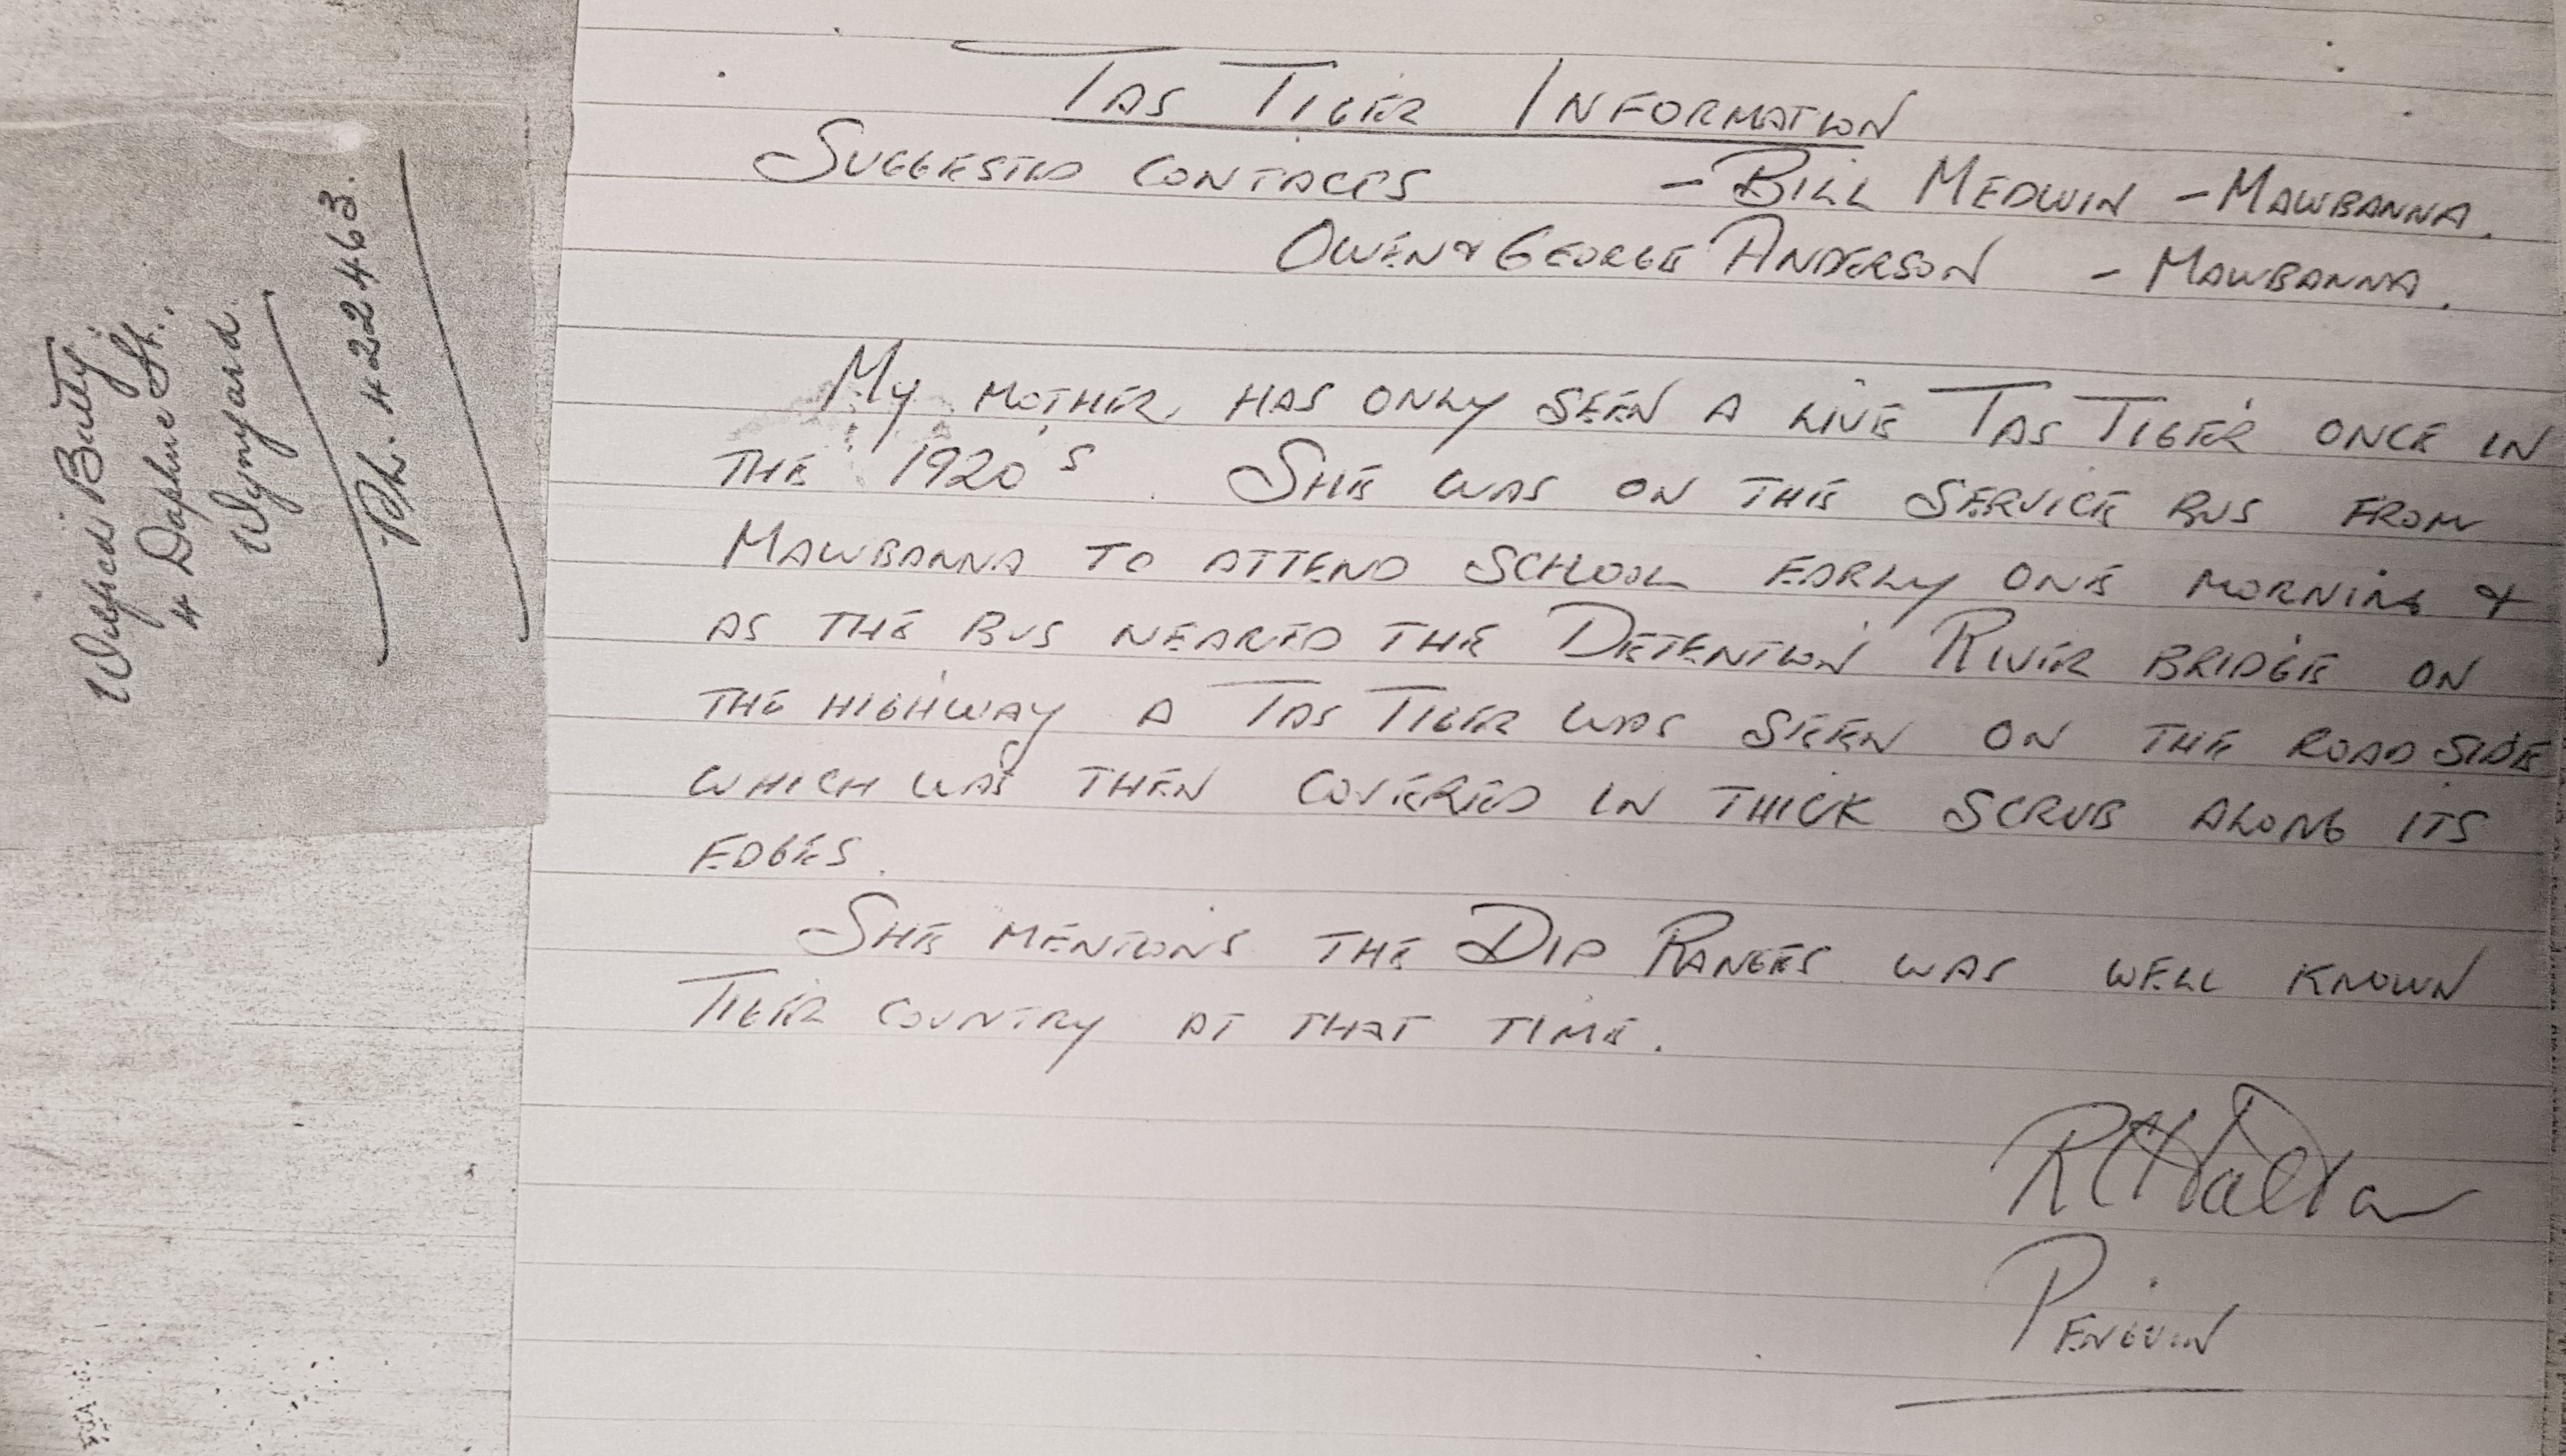 Wilfred Batty,
4 Daphne St.,
Wynyard.
Ph. 422463.
TAS TIGER INFORMATION
SUGGESTED CONTACTS - BILL MEDWIN - MAWBANNA.
OWEN & GEORGE ANDERSON - MAWBANNA.
MY MOTHER HAS ONLY SEEN A LIVE TAS TIGER ONCE IN
THE 1920'S. SHE WAS ON THE SERVICE BUS FROM
MAWBANNA TO ATTEND SCHOOL EARLY ONE MORNING &
AS THE BUS NEARED THE DETENTION RIVER BRIDGE ON
THE HIGHWAY A TAS TIGER WAS SEEN ON THE ROAD SIDE
WHICH WAS THEN COVERED IN THICK SCRUB ALONG ITS
EDGES.
SHE MENTIONS THE DIP RANGES WAS WELL KNOWN
TIGER COUNTRY AT THAT TIME.
PENGUIN